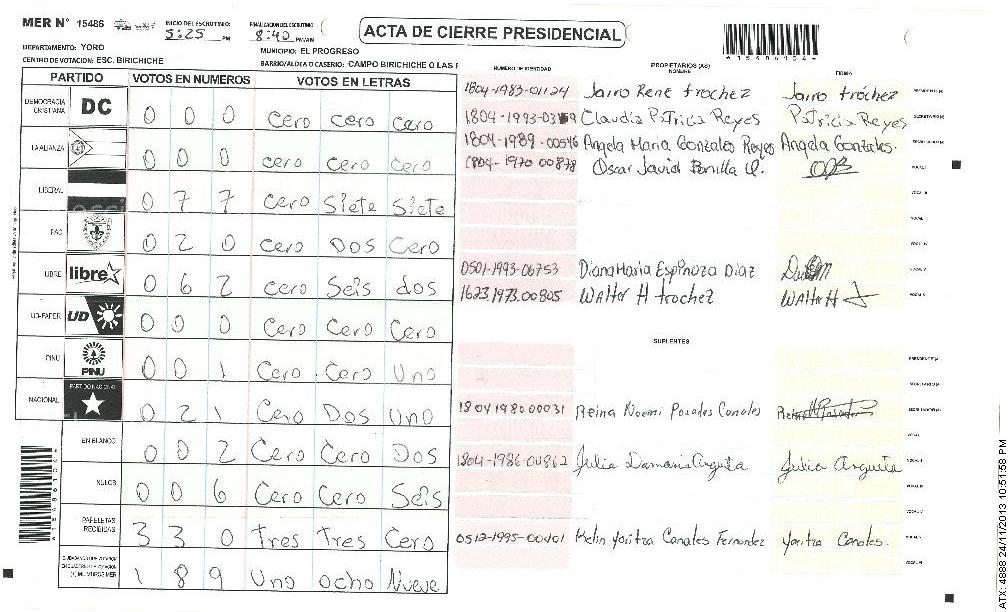 MER N° 15486 INICIO DEL ESCRUTINIO 5:25 PM FINALIZACION DEL ESCRUTINIO 8:40 PM/AM
ACTA DE CIERRE PRESIDENCIAL
DEPARTAMENTO: YORO MUNICIPIO: EL PROGRESO
CENTRO DE VOTACION: ESC. BIRICHICHE BARRIO/ALDEA O CASERIO: CAMPO BIRICHICHE O LAS F
PARTIDO VOTOS EN NUMEROS VOTOS EN LETRAS
DEMOCRACIA CRISTIANA DC 0 0 0 Cero cero cero
LA ALIANZA 0 0 0 cero cero cero
LIBERAL 0 7 7 cero Siete Siete
PAC 0 2 0 cero Dos Cero
LIBRE libre 0 6 2 cero Seis dos
UD-FAPER UD 0 0 0 Cero Cero Cero
PINU PINU 0 0 1 Cero Cero Uno
NACIONAL PARTIDO NACIONAL 0 2 1 Cero Dos Uno
EN BLANCO 0 0 2 Cero Cero Dos
NULOS 0 0 6 Cero Cero Seis
PAPELETAS RECIBIDAS 3 3 0 Tres Tres Cero
(+) MIEMBROS MER 1 8 9 Uno ocho Nueve
NUMERO DE IDENTIDAD PROPIETARIOS (AS) NOMBRE FIRMA
1804-1983-01124 Jairo Rene trochez Jairo tróchez PRESIDENTE (A)
Claudia Patricia Reyes Patricia Reyes SECRETARIO (A)
1804-1989-00546 Angela Maria Gonzales Reyes Angela Gonzales. ESCRUTADOR (A)
1804-1970 00878 Oscar Javier Bonilla O. VOCAL I
VOCAL II
VOCAL III
VOCAL IV
0501-1993-06753 Diana Maria Espinoza Diaz VOCAL V
1623 1973.00805 Walter H trochez Walter H VOCAL VI
SUPLENTES
PRESIDENTE (A)
SECRETARIO (A)
1804 1980 00031 Reina Noemi Posadas Canales ESCRUTADOR (A)
VOCAL I
1804-1986-00862 Julia Damaris Argueta Julia Argueta
VOCAL
VOCAL
0512-1995-00401 Kelin Yoritza Canales Fernandez Yoritza Canales.
VOCAL VI
ATX: 4888 24/11/2013 10:51:58 PM